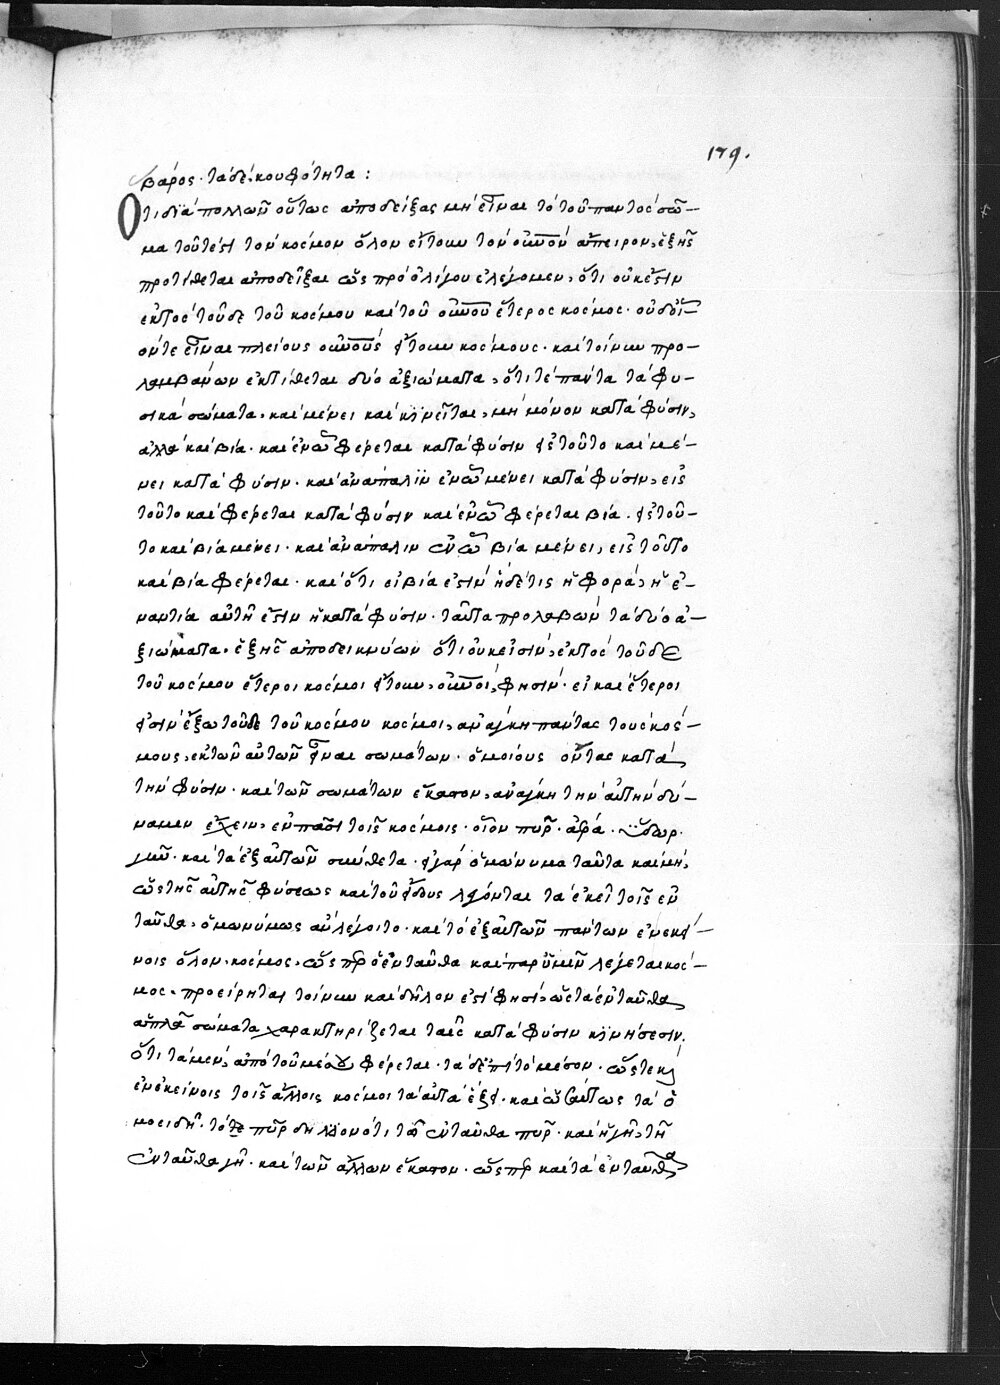 179.
βάρος· τὰ δὲ, κουφότητα :
Ὅτι διὰ πολλῶν οὕτως ἀποδείξας μὴ εἶναι τὸ τοῦ παντὸς σῶ-
μα τουτέστι τὸν κόσμον ὅλον εἴτουν τὸν οὐνὸν ἄπειρον, ἑξῆς
προτίθεται ἀποδεῖξαι ὡς πρὸ ὀλίγου ἐλέγομεν, ὅτι οὐκ ἔστιν
ἐκτὸς τοῦδε τοῦ κόσμου καὶ τοῦ οὐνοῦ ἕτερος κόσμος· οὐδὲ
ὄντε εἶναι πλείους οὐνοὺς εἴτουν κόσμους· καὶ τοίνυν προ-
λαμβάνων ἐκτίθεται δύο ἀξιώματα, ὅτι τὲ πάντα τὰ φυ-
σικὰ σώματα, καὶ μένει καὶ κινεῖται, μὴ μόνον κατὰ φύσιν,
ἀλλὰ καὶ βία· καὶ ἐν ᾧ φέρεται κατὰ φύσιν εἰς τοῦτο καὶ μέ-
νει κατὰ φύσιν· καὶ ἀνάπαλιν ἐν ᾧ μένει κατὰ φύσιν, εἰς
τοῦτο καὶ φέρεται κατὰ φύσιν καὶ ἐν ᾧ φέρεται βία· εἰς τοῦ-
το καὶ βία μένει· καὶ ἀνάπαλιν ἐν ᾧ βία μένει, εἰς τοῦτο
καὶ βία φέρεται· καὶ ὅτι εἰ βία ἐστὶν ἡδέτις ἡ φορὰ, ἡ ἐ-
ναντία αὐτῇ ἐστὶν ἡ κατὰ φύσιν· ταῦτα προλαβὼν τὰ δύο ἀ-
ξιώματα, ἑξῆς ἀποδεικνύων ὅτι οὐκ εἰσὶν, ἐκτὸς τοῦδε
τοῦ κόσμου ἕτεροι κόσμοι εἴτουν, οὐνοὶ, φησὶν· εἰ καὶ ἕτεροι
εἰσὶν ἔξω τοῦδε τοῦ κόσμου κόσμοι, ἀνάγκη πάντας τοὺς κόσ-
μους, ἐκ τῶν αὐτῶν εἶναι σωμάτων· ὁμοίους ὄντας κατὰ
τὴν φύσιν· καὶ τῶν σωμάτων ἕκαστον, ἀνάγκη τὴν αὐτὴν δύ-
ναμιν ἔχειν, ἐν πᾶσι τοῖς κόσμοις· οἷον πῦρ· ἀέρα· ὕδωρ·
γῆν· καὶ τὰ ἐξ αὐτῶν σύνθετα· εἰ γὰρ ὁμώνυμα ταῦτα καὶ μὴ,
ὡς τῆς αὐτῆς φύσεως καὶ τοῦ εἴδους λέγονται τὰ ἐκεῖ τοῖς ἐν
ταῦθα, ὁμωνύμως ἂν λέγοιτο· καὶ τὸ ἐξ αὐτῶν πάντων ἐν ἐκεί-
νοις ὅλον, κόσμος, ὥσπερ ὁ ἐνταῦθα καὶ παρ' ὑμῖν λέγεται κόσ-
μος· προείρηται τοίνυν καὶ δῆλον ἐστὶ φησὶ, ὡς τὰ ἐνταῦθα
ἁπλᾶ σώματα χαρακτηρίζεται ταῖς κατὰ φύσιν κινήσεσιν,
ὅτι τὰ μὲν, ἀπὸ τοῦ μέσου φέρεται· τὰ δ' ἐπὶ τὸ μέσον· ὥστε καὶ
ἐν ἐκείνοις τοῖς ἄλλοις κόσμοι τὰ αὐτὰ ἕξει· καὶ ὡσαύτως τὰ ὁ
μοειδῆ· τό τε πῦρ δηλονότι τῶ ἐνταῦθα πῦρ· καὶ ἡ γῆ, τῇ
ἐνταῦθα γῇ· καὶ τῶν ἄλλων ἕκαστον· ὥσπερ καὶ τὰ ἐνταῦθα